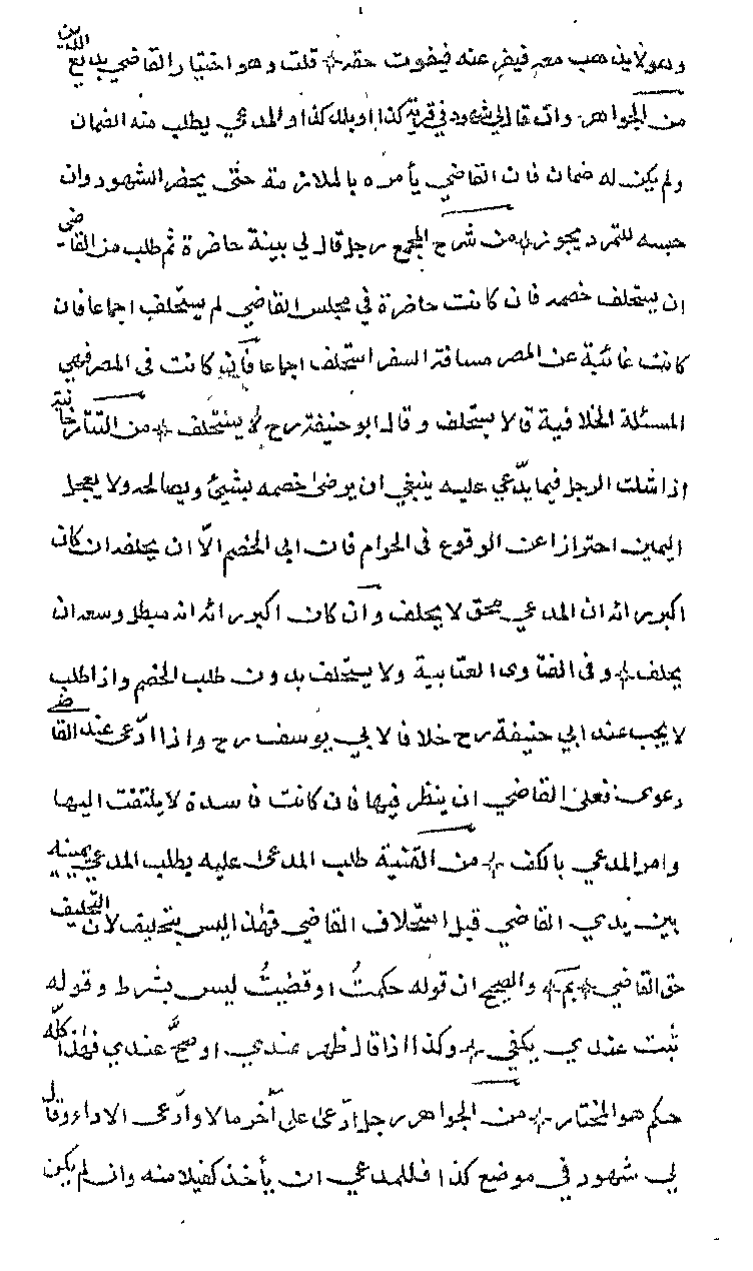 ولا يذهب معه فيفر عنه فيفوت حقه قلت وهو اختيار القاضي بديع الدين
من الجواهر وان قال لي شهود في قرية كذا او بلد كذا والمدعي يطلب منه الضمان
ولم يكن له ضمان فان القاضي يأمره بالملازمة حتى يحضر الشهود وان
حبسه للتمرد يجوز من شرح المجمع رجل قال لي بينة حاضرة ثم طلب من القاضي
ان يستحلف خصمه فان كانت حاضرة في مجلس القاضي لم يستحلف اجماعا فان
كانت غائبة عن المصر مسافة السفر استحلف اجماعا فان كانت فى المصر فهي
المسئلة الخلافية قالا يستحلف وقال ابو حنيفة رح لا يستحلف من التتارخانية
اذا شك الرجل فيما يدّعي عليه ينبغي ان يرضى خصمه بشيئ ويصالحه ولا يعجل
اليمين احترازا عن الوقوع فى الحرام فان ابى الخصم الّا ان يحلفه ان كان
اكبر رائه ان المدعي محق لا يحلف وان كان اكبر رائه انه مبطل وسعه ان
يحلف وفى الفتاوى العتابية ولا يستحلف بدون طلب الخصم واذا طلب
لا يجب عند ابي حنيفة رح خلافا لابي يوسف رح واذا ادّعى عند القاضي
دعوى فعلى القاضي ان ينظر فيها فان كانت فاسدة لا يلتفت اليها
وامر المدعي بالكف من القنية طلب المدعى عليه بطلب المدعي يمينه
بين يدي القاضي قبل استحلاف القاضي فهذا ليس بتحليف لان التحليف
حق القاضي بم والصحيح ان قوله حكمتُ او قضيتُ ليس بشرط وقوله
ثبت عندي يكفي وكذا اذا قال ظهر عندي او صحّ عندي فهذا كلّه
حكم هو المختار من الجواهر رجل ادّعى على آخر مالا وادّعى الاداء وقال
لي شهود في موضع كذا فللمدعي ان يأخذ كفيلا منه وان لم يكن